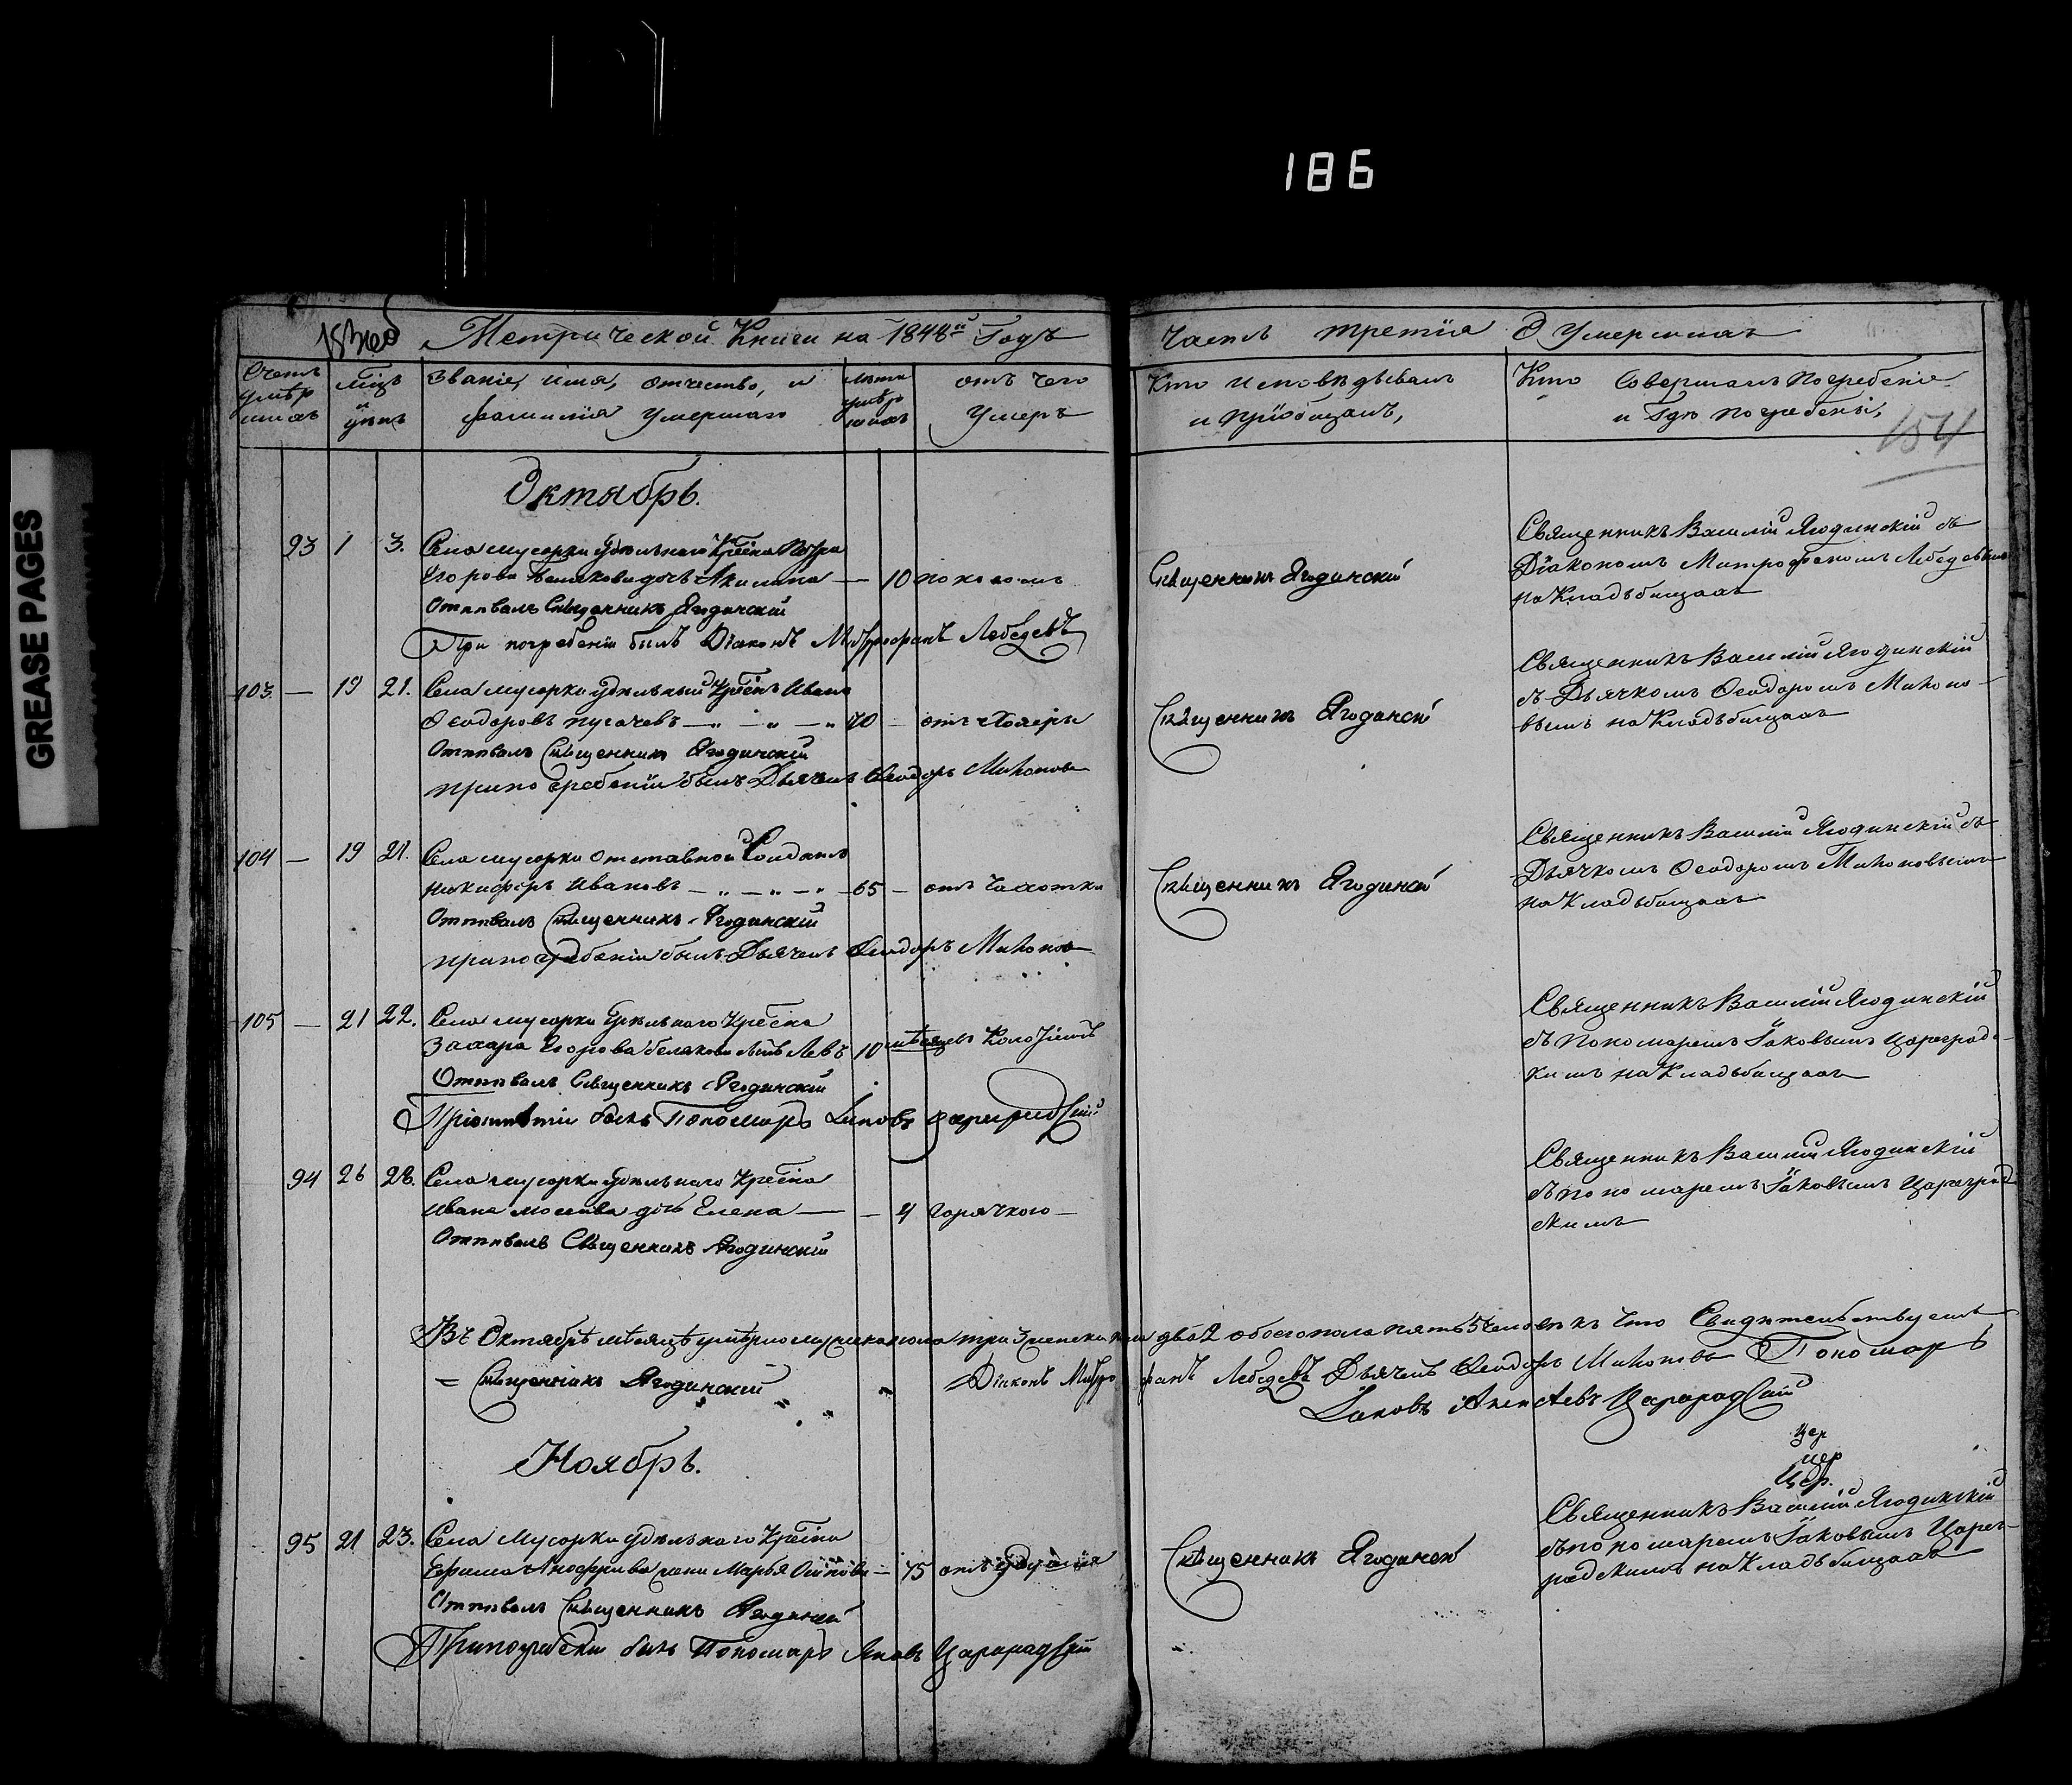 186
GREASE PAGES
Метрической Книги на 1848й Годъ
Часть третія О Умершихъ
Счетъ умѣршихъ
Мцъ и день
Званіе, имя, отчество, и фамилія умершаго
Лѣта умѣршихъ
отъ чего умеръ
Кто исповѣдывалъ и пріобщалъ,
Кто Совершалъ погребеніе и гдѣ погребены,
154
Октябрь.
93 1 3. Села мусорки удѣльнаго Крестна Петра
Егорова Белякова дочь Акилина — 10 поносомъ
Отпѣвалъ Священникъ Ягодинскій
При погребеніи былъ Діаконъ Митрофанъ Лебедевъ
Священникъ Ягодинскій
Священникъ Василій Ягодинскій съ
Діакономъ Митрофаномъ Лебедевымъ
на Кладъбищахъ
103. — 19 21. Села мусорки удѣльный Крестнъ Иванъ
Ѳеодоровъ пугачевъ — „ — „ — „ 70 — отъ Холеры
Отпѣвалъ Священникъ Ягодинскій
при погребеніи былъ Дьячекъ Ѳеодоръ Михоновъ
Священникъ Ягодинскій
Священникъ Василій Ягодинскій
съ Дьячкомъ Ѳеодоромъ Михоно-
вымъ на Кладъбищахъ
104 — 19 21. Села мусорки отставной Солдатъ
Никифоръ Ивановъ — „ — „ — „ — 65 — отъ чахотки
Отпѣвалъ Священникъ Ягодинскій
при погребеніи былъ Дьячекъ Ѳеодоръ Михоновъ
Священникъ Ягодинскій
Священникъ Василій Ягодинскій съ
Дьячкомъ Ѳеодоромъ Михоновымъ
на Кладъбищахъ
105 — 21 22. Села мусорки удѣльнаго Крестна
Захара Егорова Белякова сынъ Левъ 10 мѣсяцевъ Колотіемъ
Отпѣвалъ Священникъ Ягодинскій
былъ Пономарь Іаковъ Цареградскій
Священникъ Василій Ягодинскій
съ Пономаремъ Іаковымъ Цареградс-
кимъ на Кладъбищахъ
94 26 28. Села мусорки удѣльнаго Крестна
Ивана дочь Елена — — 4 Горячкою —
Отпѣвалъ Священникъ Ягодинскій
Священникъ Василій Ягодинскій
съ пономаремъ Іаковымъ Цареград-
скимъ
Въ Октябрѣ мѣсяцѣ умѣрло мужеска пола три 3 женска пола два 2 обоего пола пять 5 человѣкъ что Свидѣтельствуемъ
Священникъ Ягодинскій „ Діаконъ Митрофанъ Лебедевъ Дьячекъ Ѳеодоръ Михоновъ Пономарь
Іаковъ Алексѣевъ Цареградскій
Ноябрь.
Цер
цер
Цер.
95 21 23. Села Мусорки удѣльнаго Крестна
Ефима жена Марья — 75 отъ удушія
Отпѣвалъ Священникъ Ягодинскій
При погребеніи былъ Пономарь Іаковъ Цареградскій
Священникъ Ягодинскій
Священникъ Василій Ягодинскій
съ пономаремъ Іаковымъ Царег-
радскимъ на Кладъбищахъ